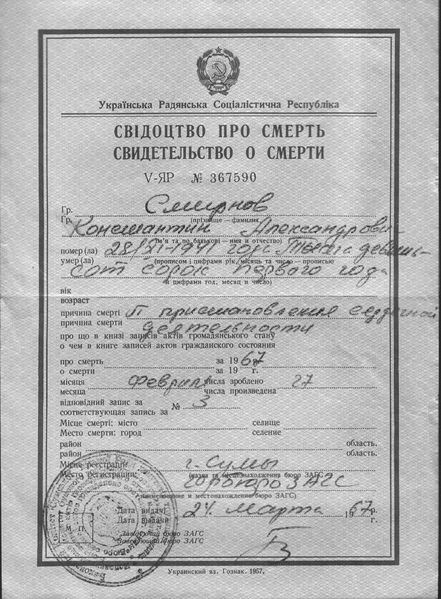 Українська Радянська Соціалістична Республіка
СВІДОЦТВО ПРО СМЕРТЬ
СВИДЕТЕЛЬСТВО О СМЕРТИ
V-ЯР № 367590
Гр. Смирнов
Гр. (прізвище — фамилия)
Константин Александрович
(ім'я та по батькові — имя и отчество)
номер(ла) 28/VI-1941 года Тысяча девять-
умер(ла) (прописом і цифрами рік, місяць та число — прописью
сот сорок первого года
и цифрами год, месяц и число)
вік
возраст
причина смерті П приостановления сердечной
причина смерти деятельности
про що в книзі записів актів громадянського стану
о чем в книге записей актов гражданского состояния
про смерть за 1967 р.
о смерти за 19 г.
місяця Февраля числа зроблено 27
месяца числа произведена
відповідний запис за № 3
соответствующая запись за
Місце смерті: місто селище
Место смерти: город селение
район область.
район область.
Місце реєстрації г. Сумы
Место регистрации: (назва та місцезнаходження бюро ЗАГС)
горбюро ЗАГС
(наименование и местонахождение бюро ЗАГС)
Дата видачі 24 марта 1967 г.
Дата выдачи
М. П.
Завідуючий бюро ЗАГС
Заведующий бюро ЗАГС
Украинский яз. Гознак. 1957.